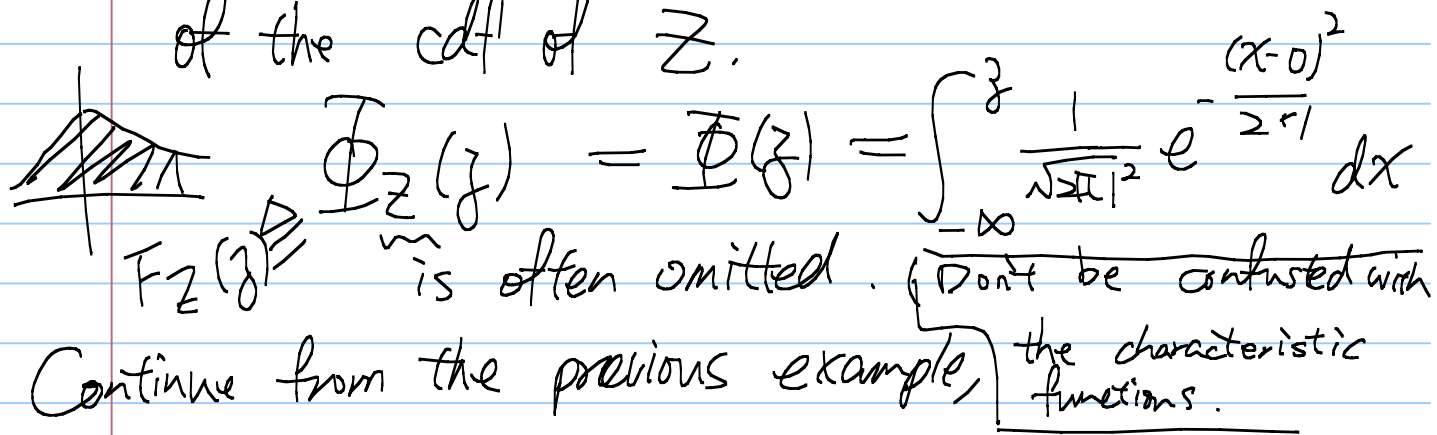 of the cdf of Z.
Φ_Z(z) = Φ(z) = ∫_{-∞}^{z} \frac{1}{\sqrt{2π1^2}} e^{-\frac{(x-0)^2}{2*1}} dx
F_Z(z) is often omitted. (Don't be confusted with
the characteristic
functions.
Continue from the previous example,